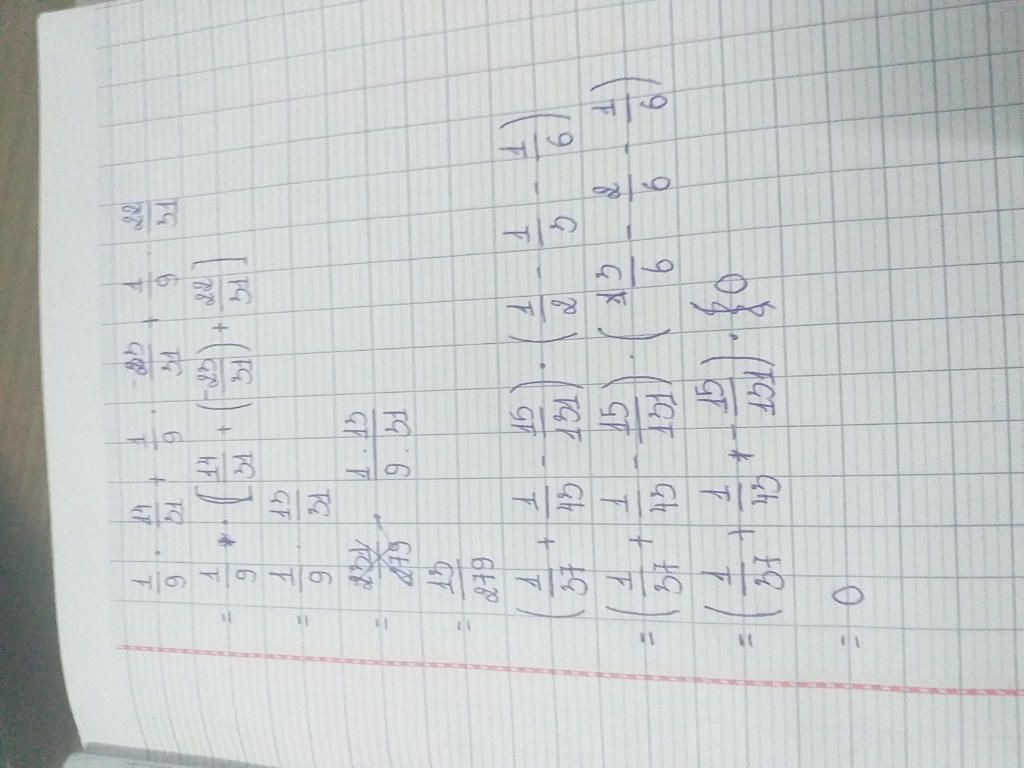 1/9 · 14/31 + 1/9 · -23/31 + 1/9 · 22/31
= 1/9 · [14/31 + (-23/31) + 22/31]
= 1/9 · 13/31
= 1 · 13/9 · 31
= 13/279
(1/37 + 1/43 - 15/131) · (1/2 - 1/3 - 1/6)
= (1/37 + 1/43 - 15/131) · (3/6 - 2/6 - 1/6)
= (1/37 + 1/43 - 15/131) · 0
= 0